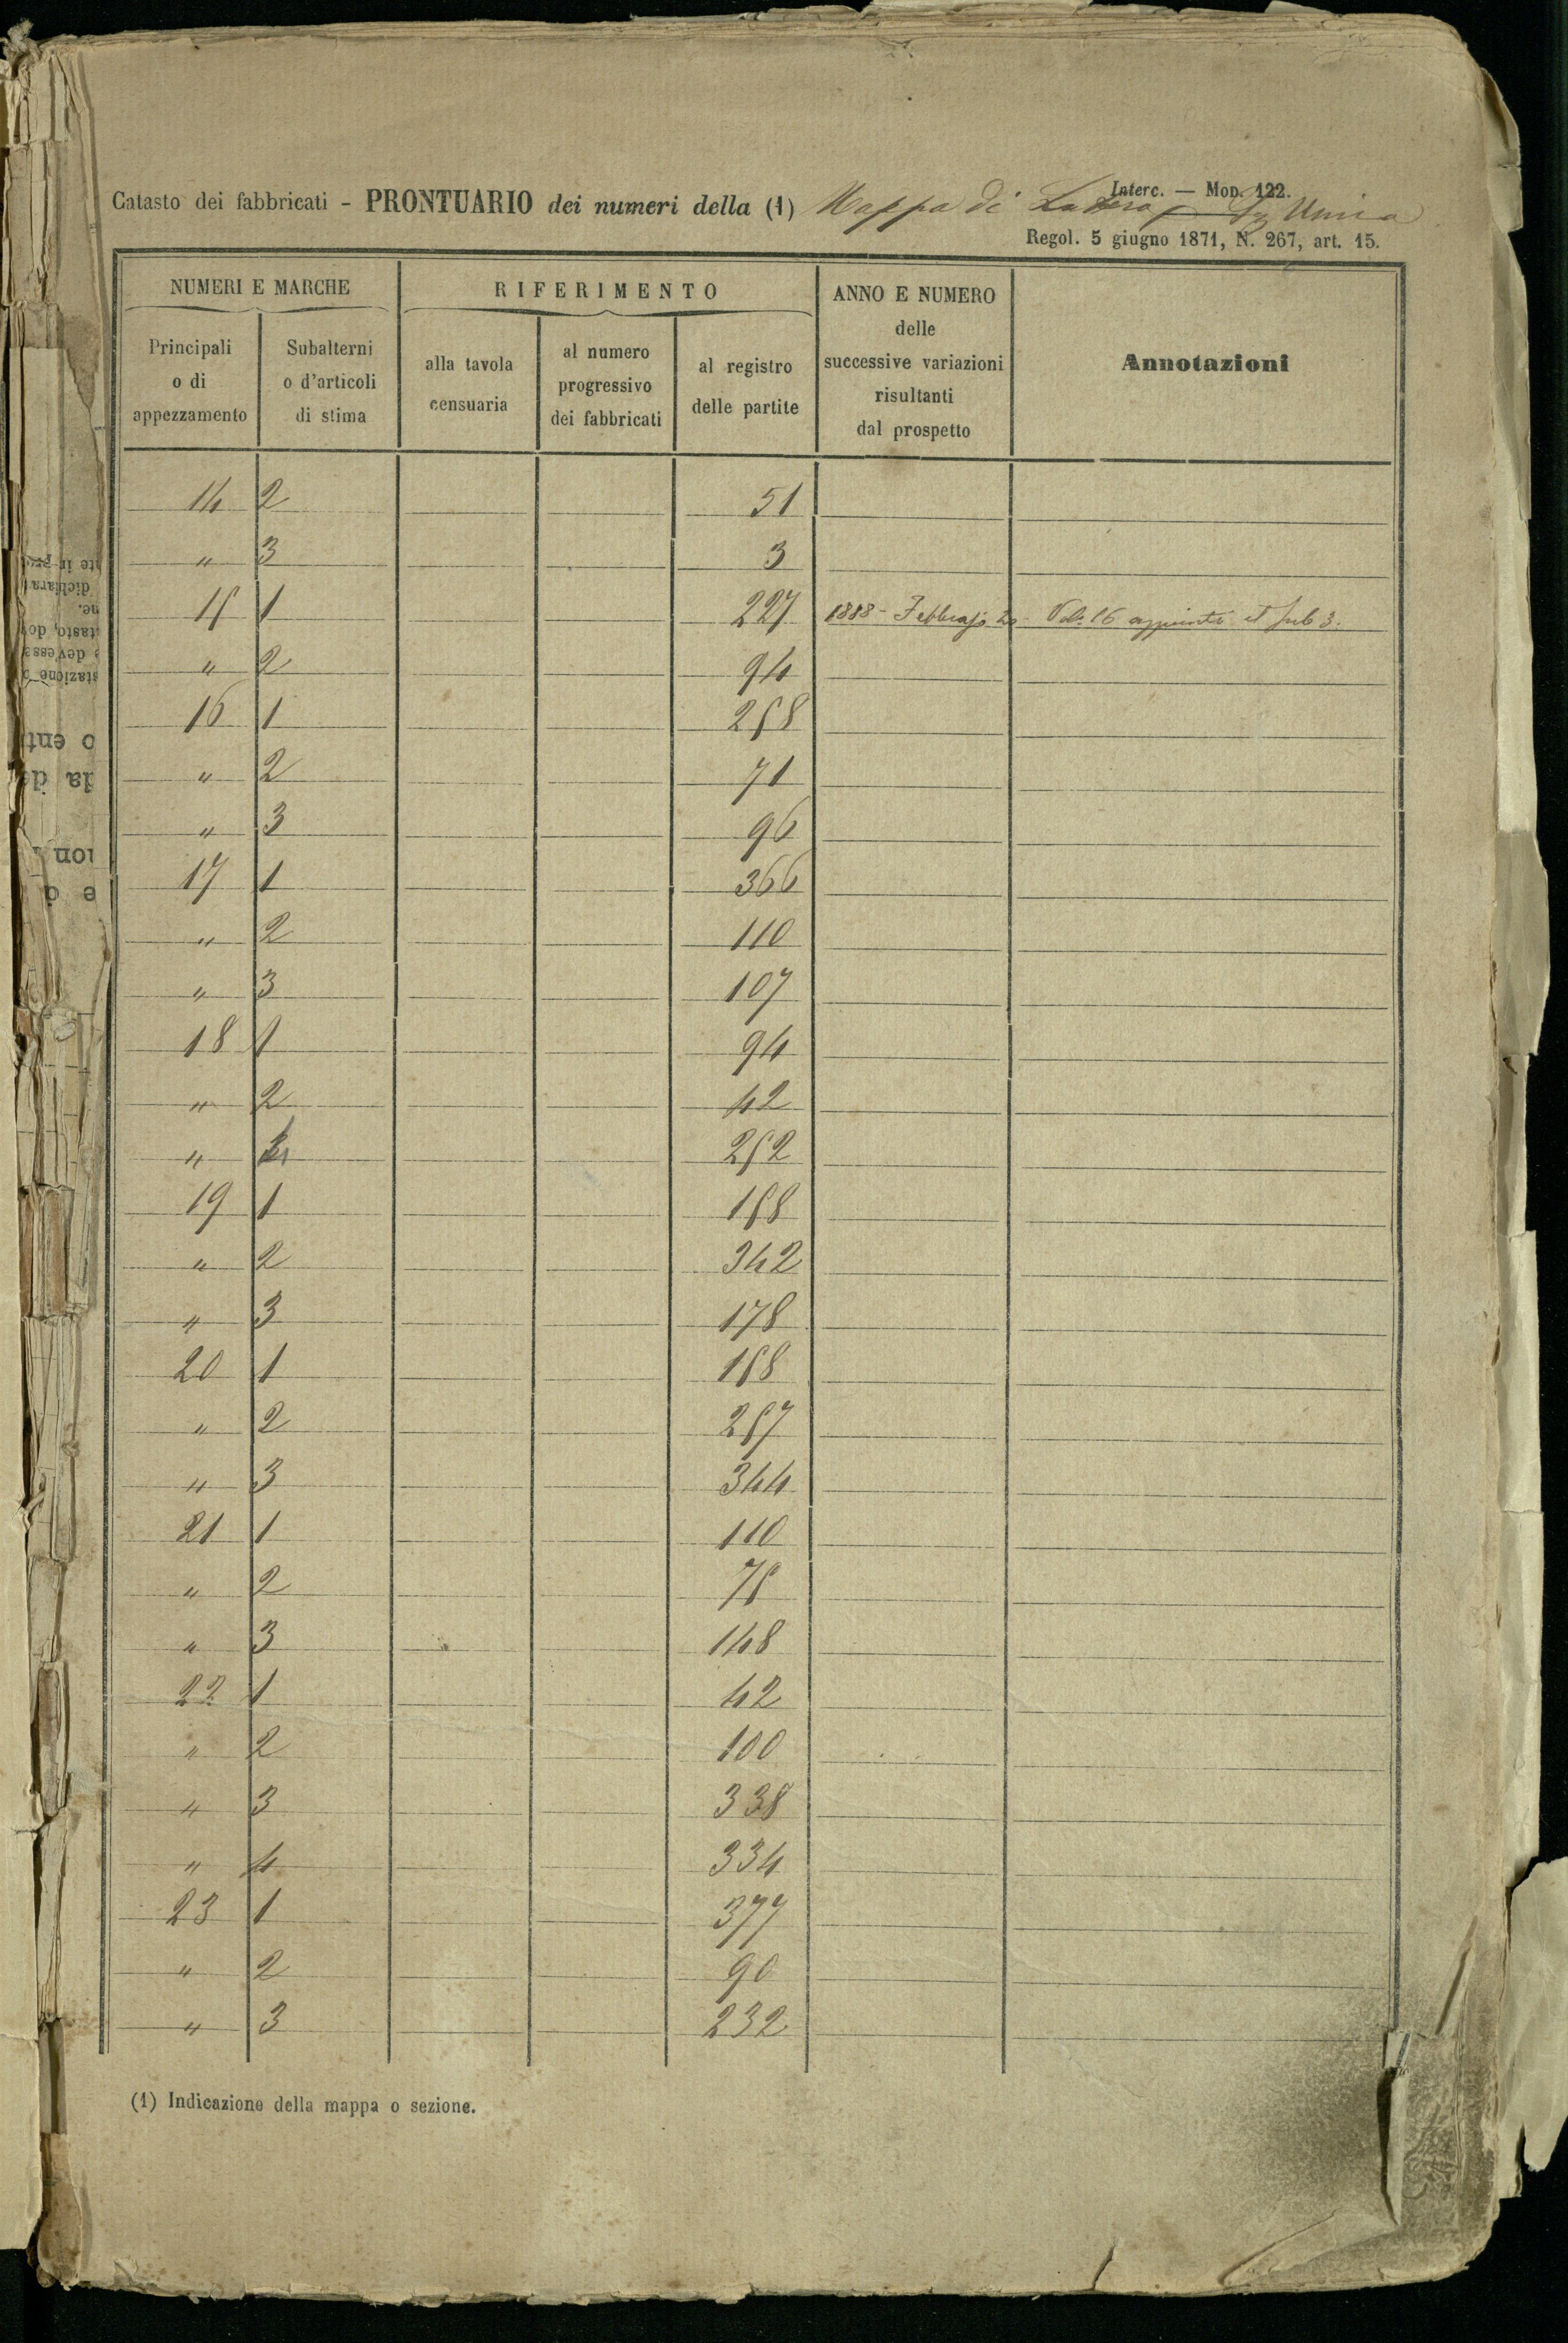 Interc. — Mod. 122.
Catasto dei fabbricati - PRONTUARIO dei numeri della (1) Mappa di Latera Sz Unica
Regol. 5 giugno 1871, N. 267, art. 15.
NUMERI E MARCHE
RIFERIMENTO
ANNO E NUMERO
delle
successive variazioni
risultanti
dal prospetto
Annotazioni
Principali
o di
appezzamento
Subalterni
o d'articoli
di stima
alla tavola
censuaria
al numero
progressivo
dei fabbricati
al registro
delle partite
14 2 51
" 3 3
15 1 227 1888 - Febbrajo 20 16 sub 3.
" 2 94
16 1 258
" 2 71
" 3 96
17 1 366
" 2 110
" 3 107
18 1 94
" 2 42
" 252
19 1 158
" 2 342
" 3 178
20 1 158
" 2 257
" 3 344
21 1 110
" 2 75
" 3 148
22 1 42
" 2 100
" 3 338
" 4 334
23 1 377
" 2 90
" 3 232
(1) Indicazione della mappa o sezione.